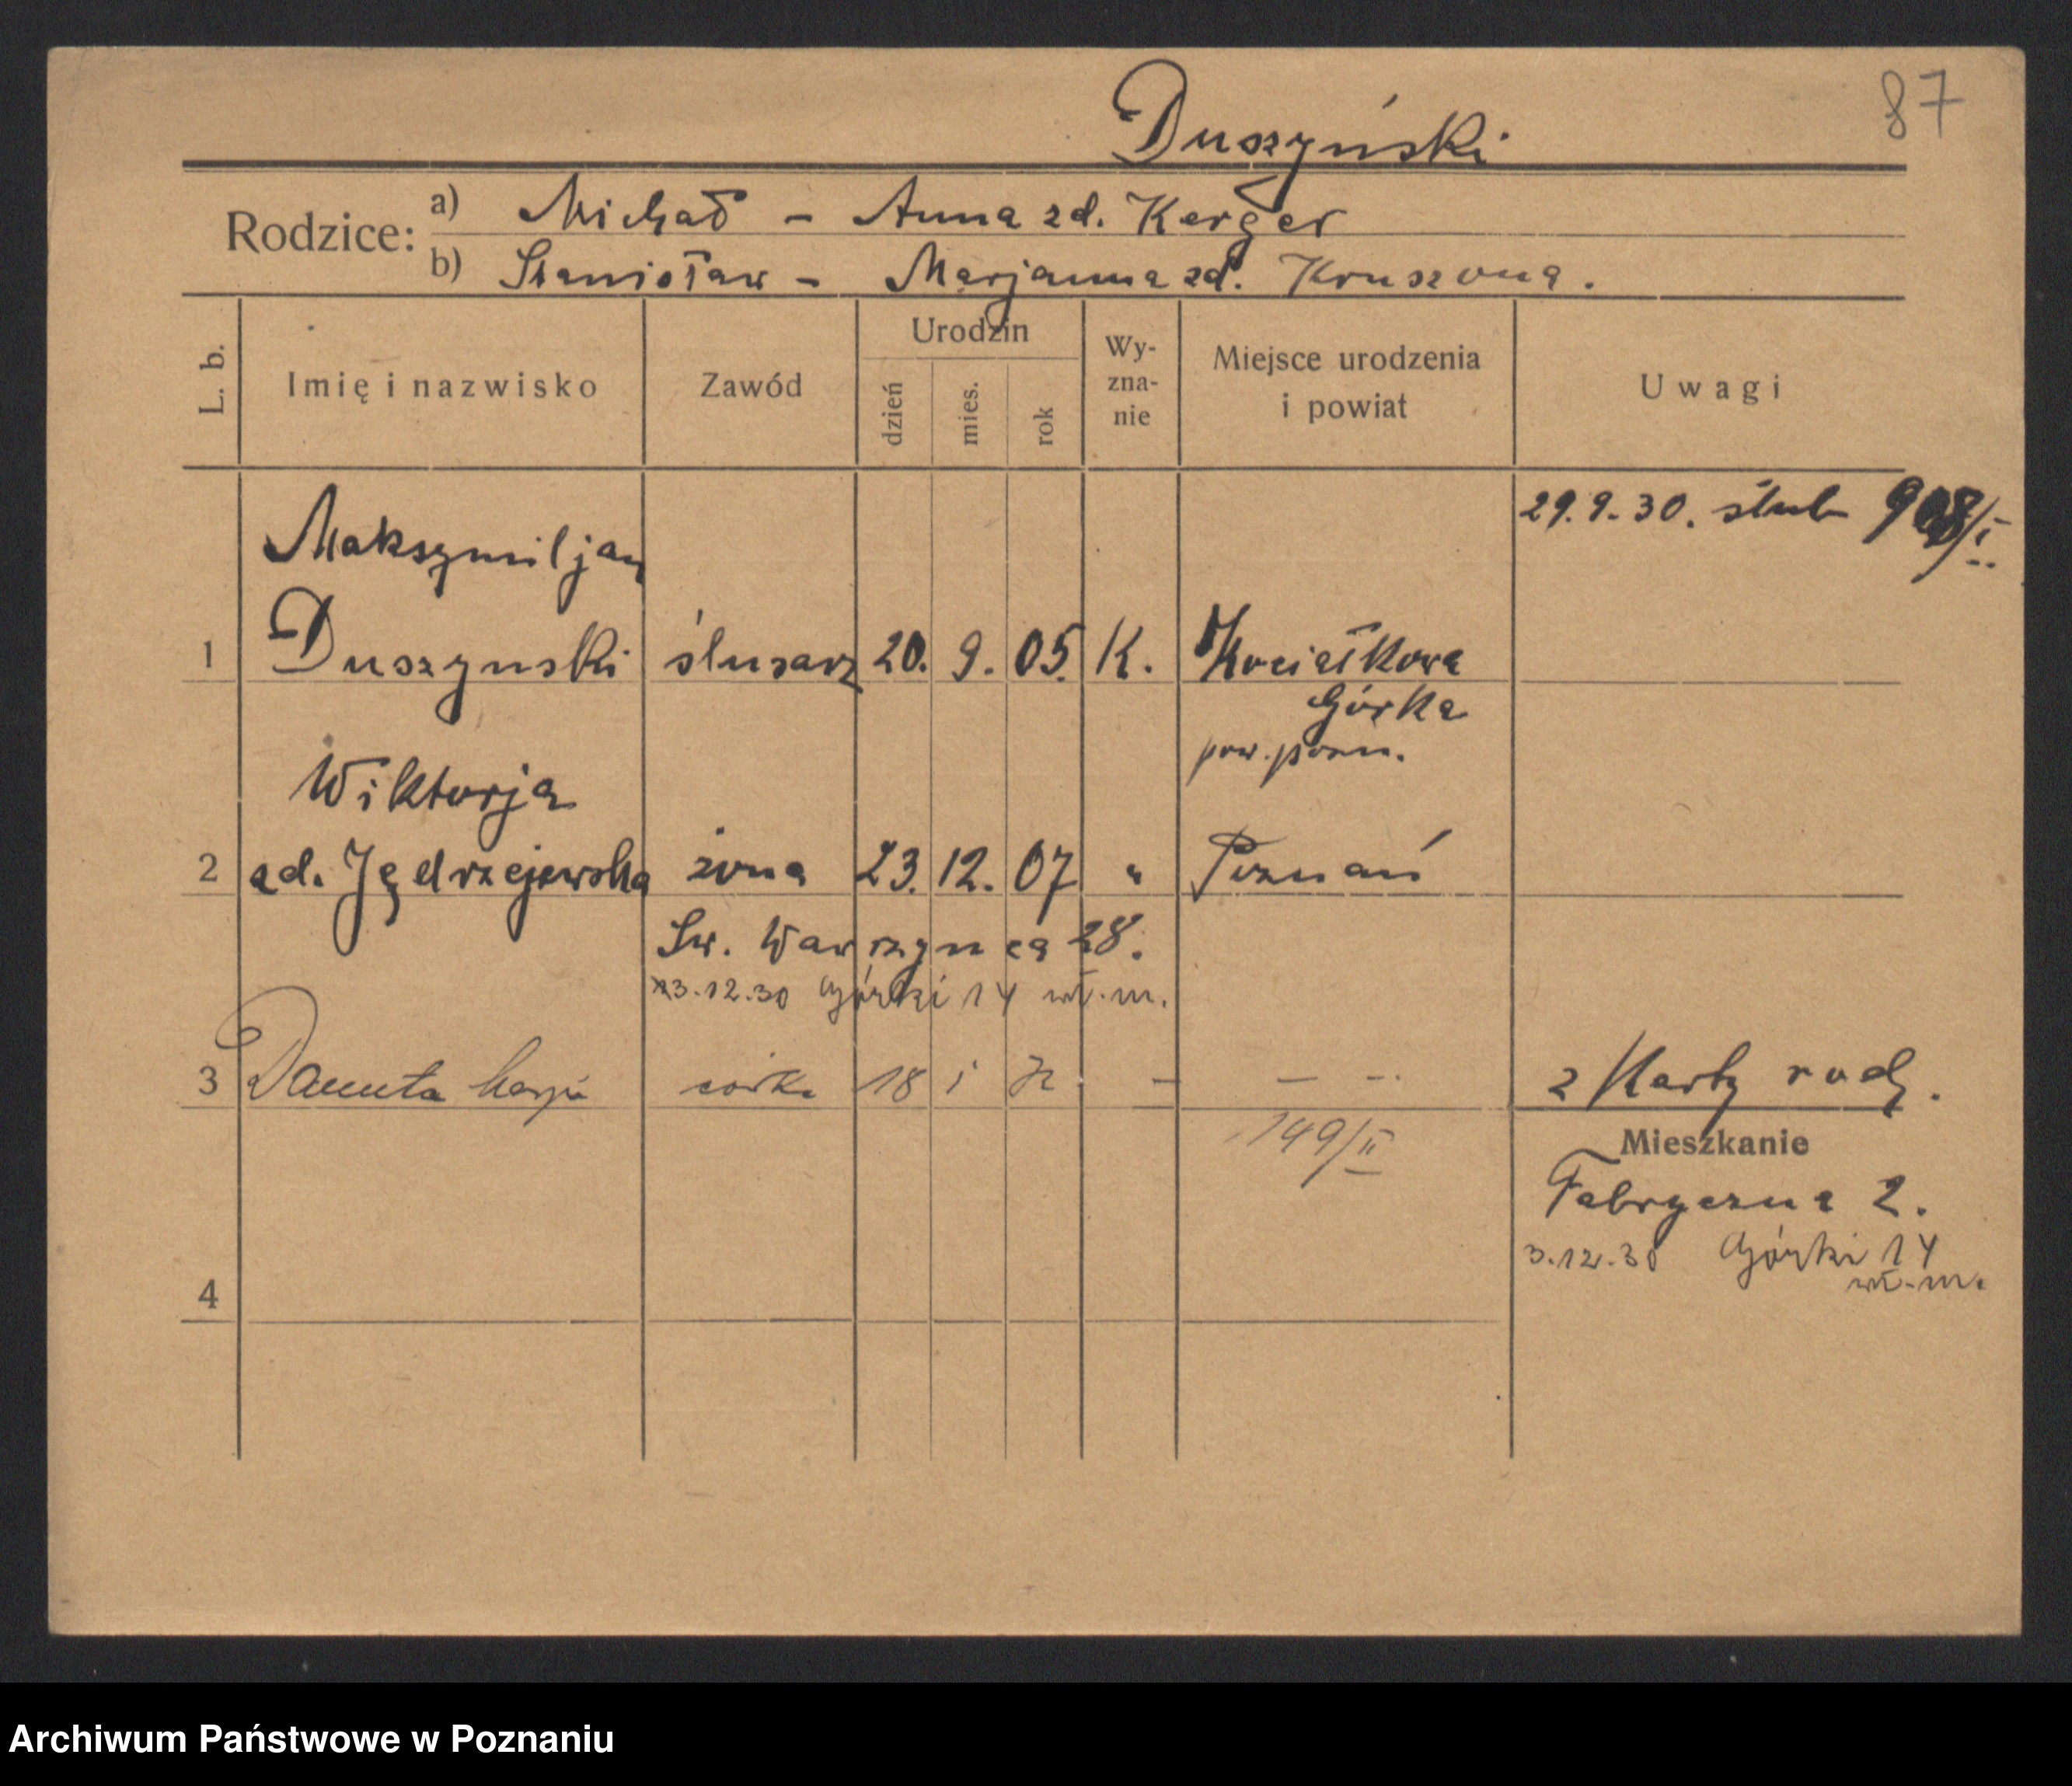 87
Duszyński
Rodzice: a) Michał – Anna zd. Kerger
b) Stanisław – Marjanna zd. Kruszona.
L. b. Imię i nazwisko Zawód Urodzin dzień mies. rok Wyznanie Miejsce urodzenia i powiat Uwagi
29.9.30. ślub 908/I.
Maksymiljan
1 Duszynski ślusarz 20. 9. 05. K. Kociałkowa
Górka
pow. pozn.
Wiktorja
2 zd. Jędrzejewska żona 23. 12. 07 " Poznań
Św. Wawrzynca 28.
3.12.30 Górki 14 wł. m.
3 Danuta córka 18 i – – – 2 Karty rodz.
149/II
Mieszkanie
Fabryczna 2.
3.12.30 Górki 14
wł. m.
4
Archiwum Państwowe w Poznaniu